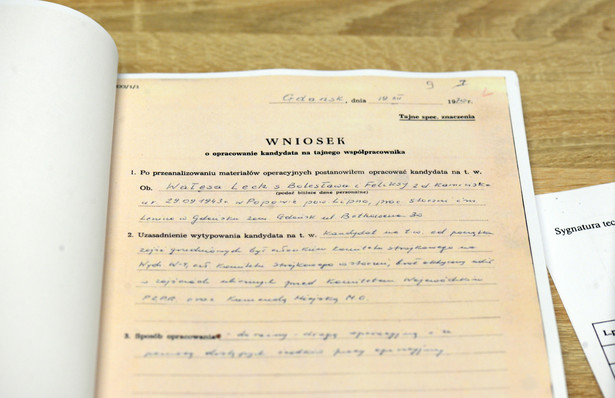 9
Gdańsk, dnia 19 XII 19
Tajne spec. znaczenia
WNIOSEK
o opracowanie kandydata na tajnego współpracownika
1. Po przeanalizowaniu materiałów operacyjnych postanowiłem opracować kandydata na t. w.
Ob. Wałęsa Lech s Bolesława i Feliksy z d. Kamińska
(podać bliższe dane personalne)
ur. 29.09.1943r. w Popowie pow Lipno, prac. stoczni im
Lenina w Gdańsku zam Gdańsk ul.
2. Uzasadnienie wytypowania kandydata na t. w. Kandydat na t.w. od początku
zajść grudniowych był członkiem komitetu strajkowego na
Wydz. W-4, Komitetu Strajkowego brał aktywny udział
w zajściach ulicznych przed Komitetem Wojewódzkim
PZPR oraz Komendą Miejską M.O.
3. Sposób opracowania - drogą operacyjną i
pomocy dostępnych środków pracy operacyjnej
Sygnatura tec
L.p